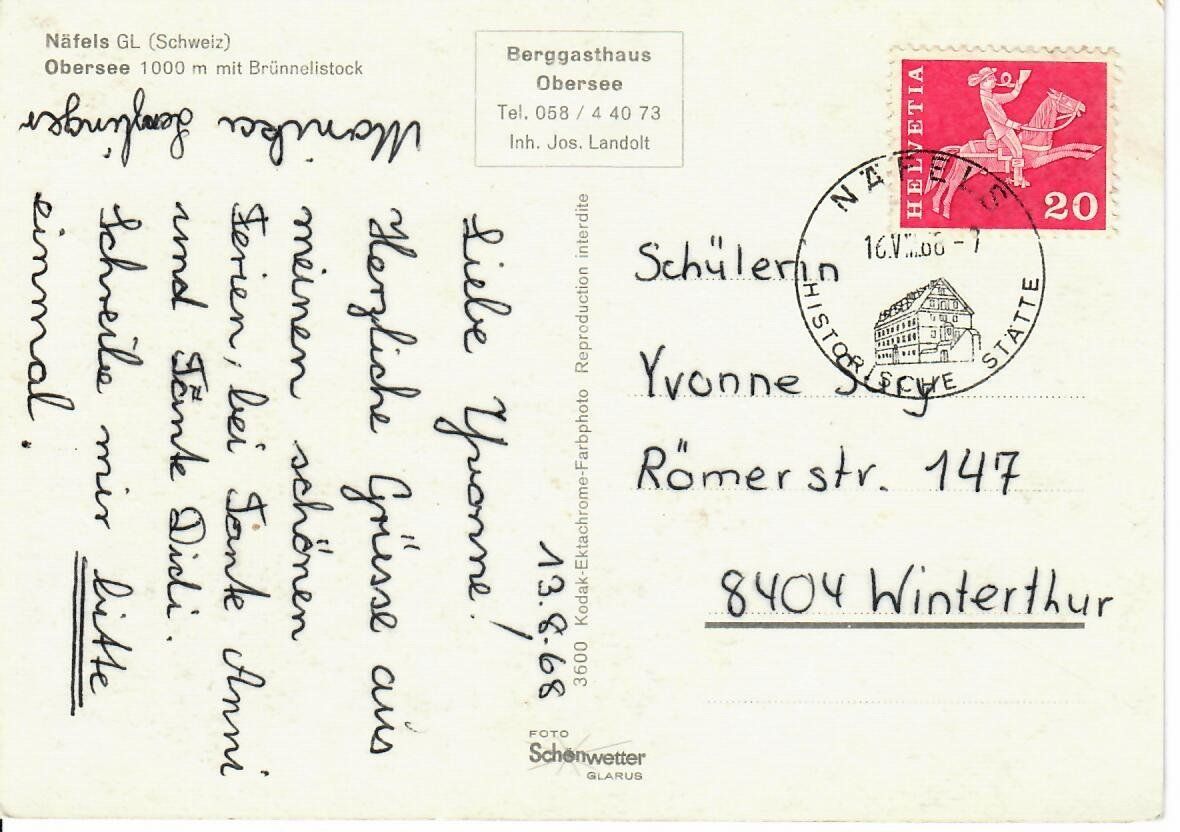 Näfels GL (Schweiz)
Obersee 1000 m mit Brünnelistock
Berggasthaus
Obersee
Tel. 058 / 4 40 73
Inh. Jos. Landolt
HELVETIA
20
NÄFELS
HISTORISCHE STÄTTE
13.8.68
Liebe Yvonne!
Herzliche Grüsse aus
meinen schönen
Ferien, bei Tante Anni
und Tante Didi.
Schreibe mir bitte
einmal.
Monika
Schülerin
Yvonne
Römerstr. 147
8404 Winterthur
3600 Kodak-Ektachrome-Farbphoto Reproduction interdite
FOTO
Schönwetter
GLARUS